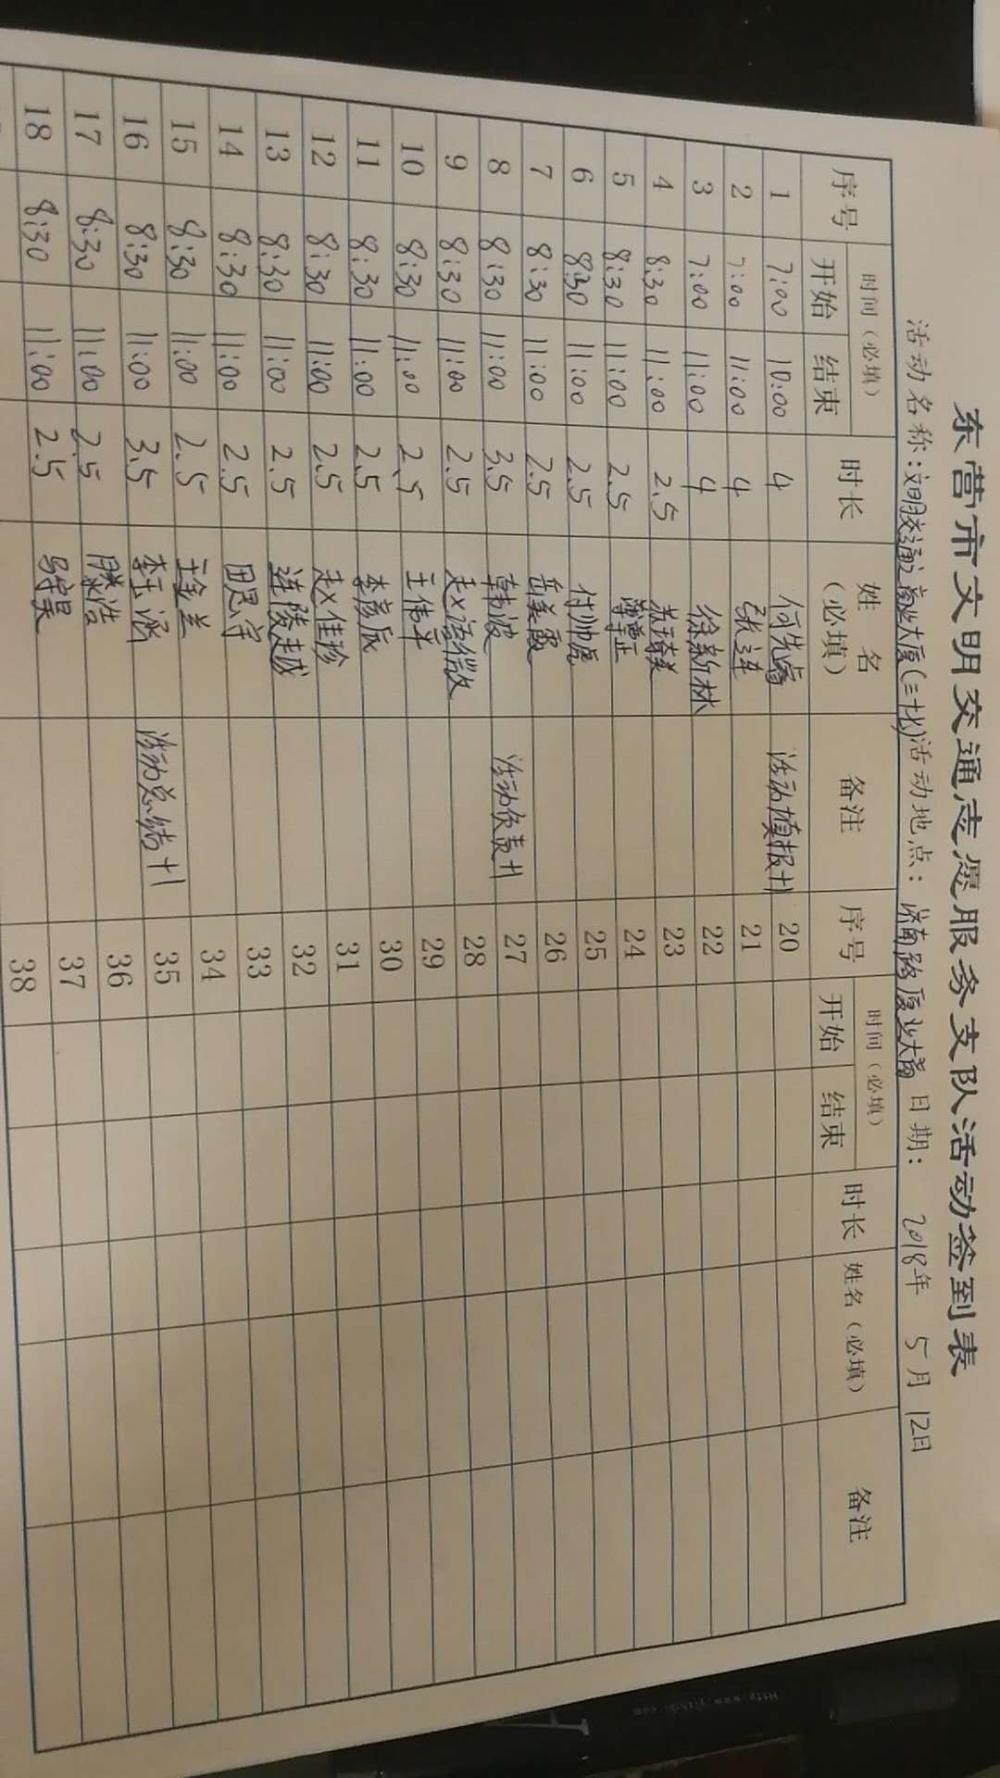 东营市文明交通志愿服务支队活动签到表
活动名称：文明交通之商业大厦(三十七) 活动地点：济南路 日期：2018年 5月12日
序号 时间（必填） 时长 姓名（必填） 备注 序号 时间（必填） 时长 姓名（必填） 备注
开始 结束 开始 结束
1 7:00 10:00 4 活动填报+1 20
2 7:00 11:00 4 张莲 21
3 7:00 11:00 4 徐新林 22
4 8:30 11:00 2.5 23
5 8:30 11:00 2.5 24
6 8:30 11:00 2.5 付帅虎 25
7 8:30 11:00 2.5 岳美霞 26
8 8:30 11:00 3.5 韩波 活动负责+1 27
9 8:30 11:00 2.5 赵语微 28
10 8:30 11:00 2.5 王伟平 29
11 8:30 11:00 2.5 李彦辰 30
12 8:30 11:00 2.5 赵佳珍 31
13 8:30 11:00 2.5 32
14 8:30 11:00 2.5 田思宇 33
15 8:30 11:00 2.5 王金兰 34
16 8:30 11:00 3.5 李玉涵 活动总结+1 35
17 8:30 11:00 2.5 滕浩 36
18 8:30 11:00 2.5 马守昊 37
38